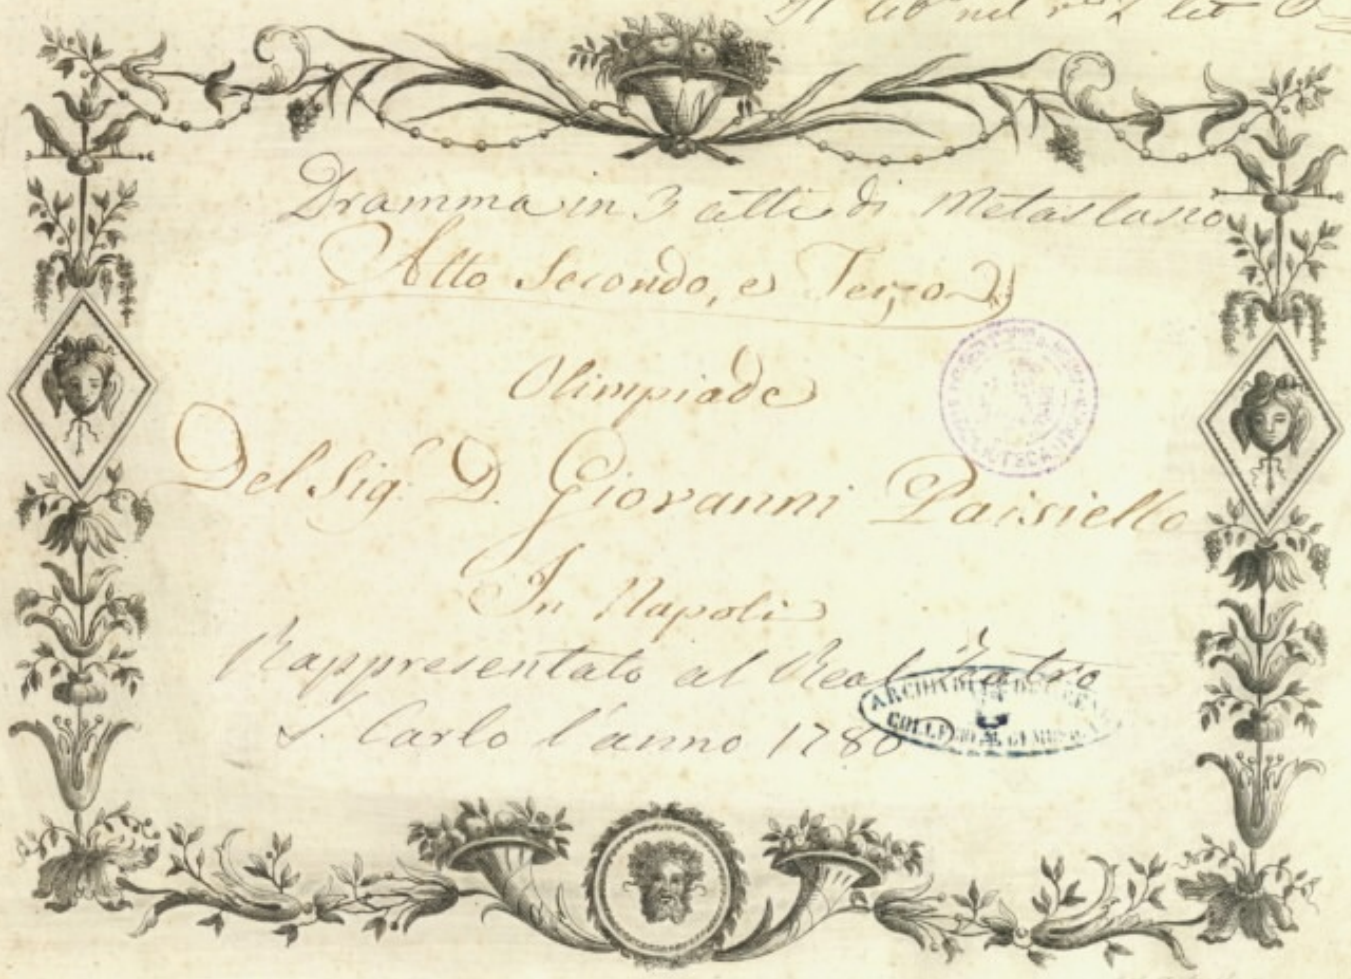 Il lib nel r 2 let O
Dramma in 3 atti di Metastasio
Atto Secondo, e Terzo
Olimpiade
Del Sig.r D. Giovanni Paisiello
In Napoli
Rappresentato al Real Teatro
S. Carlo l'anno 1786
ARCHIVIO
COLLEGIO